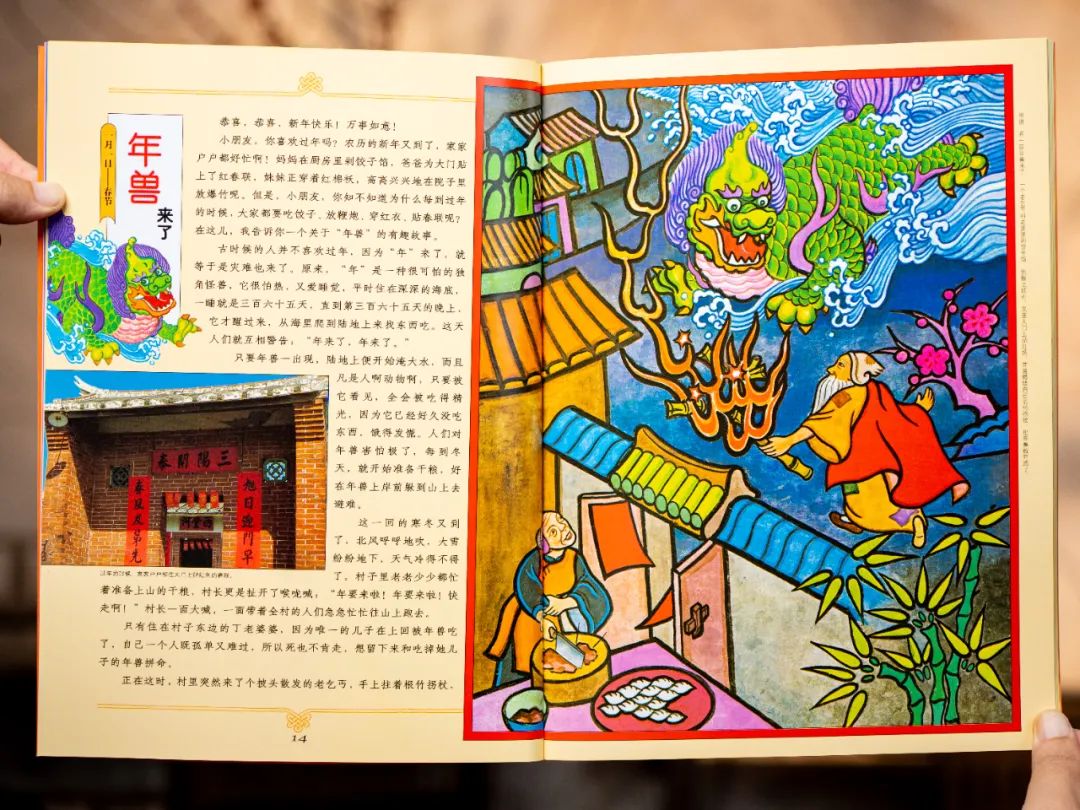 年兽
来了
一月一日——春节
恭喜，恭喜，新年快乐！万事如意！
小朋友，你喜欢过年吗？农历的新年又到了，家家
户户都好忙啊！妈妈在厨房里剁饺子馅，爸爸为大门贴
上了红春联，妹妹正穿着红棉袄，高高兴兴地在院子里
放爆竹呢。但是，小朋友，你知不知道为什么每到过年
的时候，大家都要吃饺子、放鞭炮、穿红衣、贴春联呢？
在这儿，我告诉你一个关于“年兽”的有趣故事。
古时候的人并不喜欢过年，因为“年”来了，就
等于是灾难也来了。原来，“年”是一种很可怕的独
角怪兽，它很怕热，又爱睡觉，平时住在深深的海底，
一睡就是三百六十五天，直到第三百六十五天的晚上，
它才醒过来，从海里爬到陆地上来找东西吃。这天
人们就互相警告：“年来了，年来了。”
只要年兽一出现，陆地上便开始淹大水，而且
凡是人啊动物啊，只要被
它看见，全会被吃得精
光，因为它已经好久没吃
东西，饿得发慌。人们对
年兽害怕极了，每到冬
天，就开始准备干粮，好
在年兽上岸前躲到山上去
避难。
这一回的寒冬又到
了，北风呼呼地吹，大雪
纷纷地下，天气冷得不得
了，村子里老老少少都忙
着准备上山的干粮，村长更是扯开了喉咙喊：“年要来啦！年要来啦！快
走啊！”村长一面大喊，一面带着全村的人们急急忙忙往山上跑去。
只有住在村子东边的丁老婆婆，因为唯一的儿子在上回被年兽吃
了，自己一个人既孤单又难过，所以死也不肯走，想留下来和吃掉她儿
子的年兽拼命。
正在这时，村里突然来了个披头散发的老乞丐，手上拄着根竹拐杖，
三陽開泰
旭日迎門早
春風及第先
14